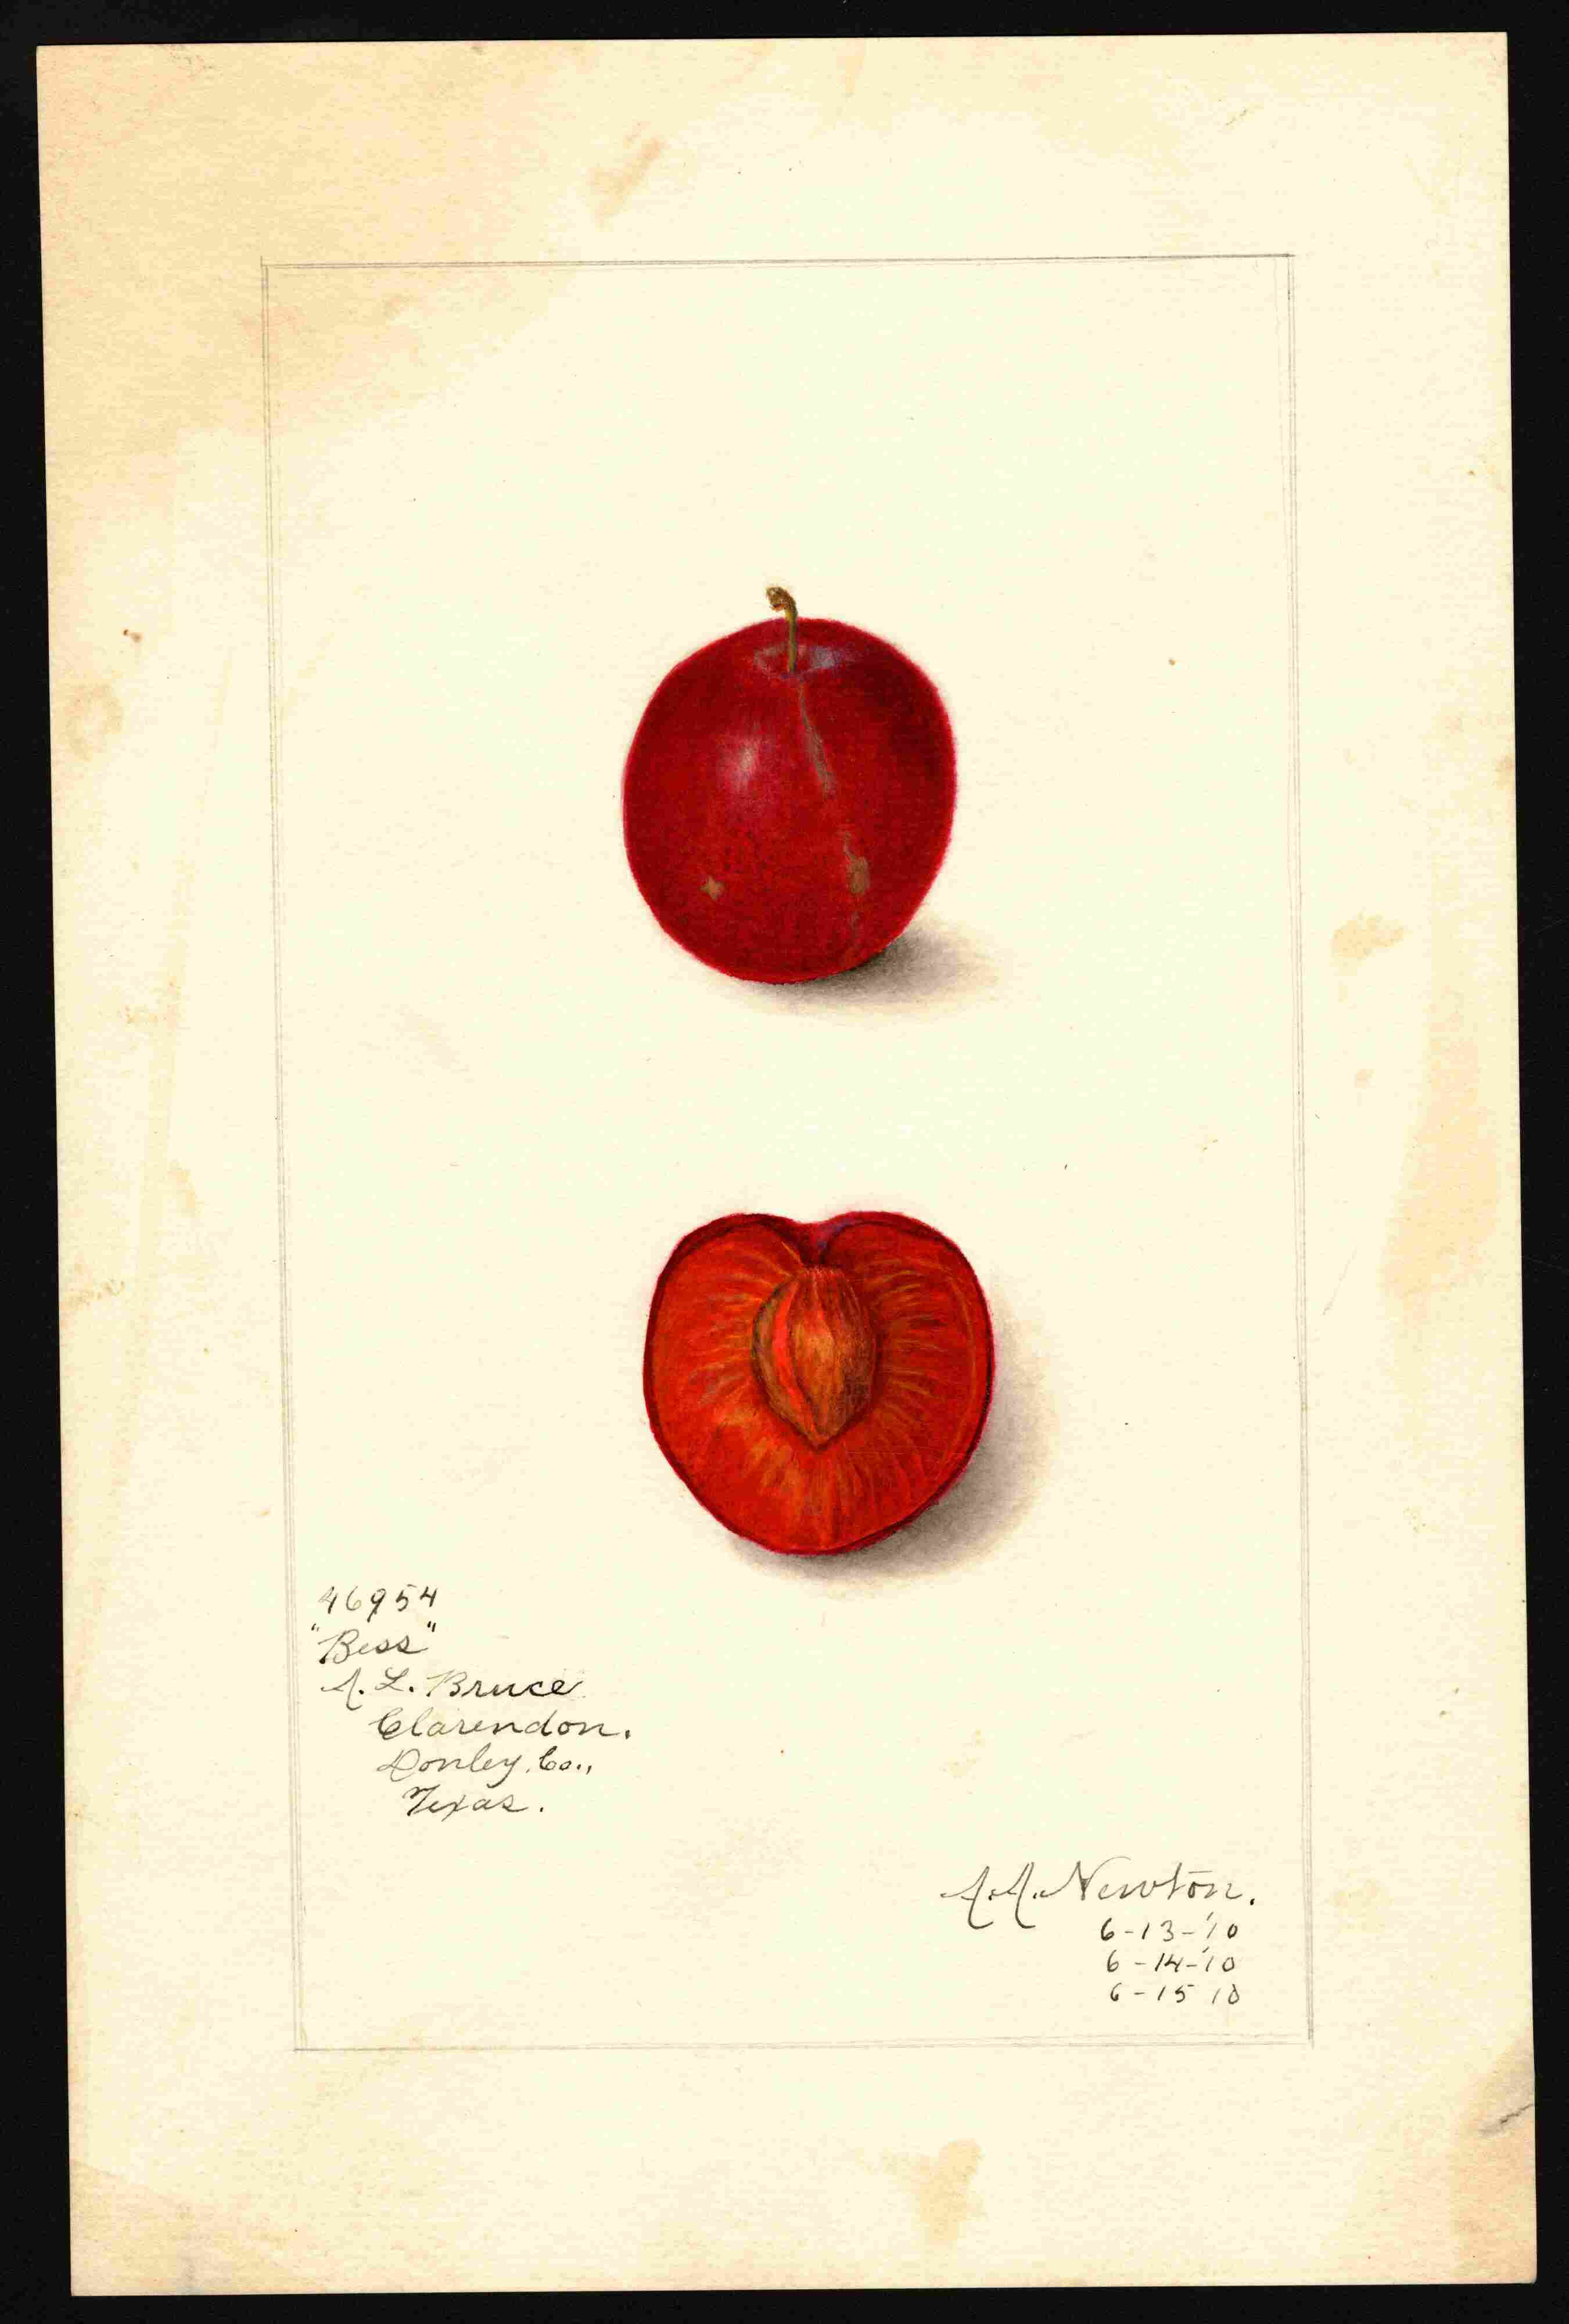 46954
"Bess"
A. L. Bruce
Clarendon.
Donley Co.,
Texas.
A. A. Newton.
6-13-'10
6-14-'10
6-15 10